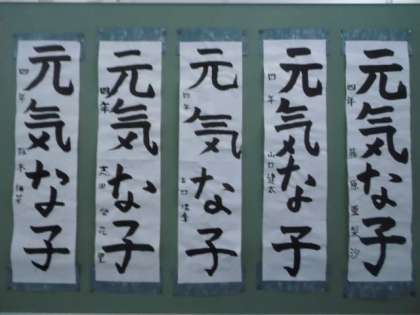 元気な子
四年
元気な子
四年
元気な子
四年
元気な子
四年 山口健太
元気な子
四年 藤原亜梨沙